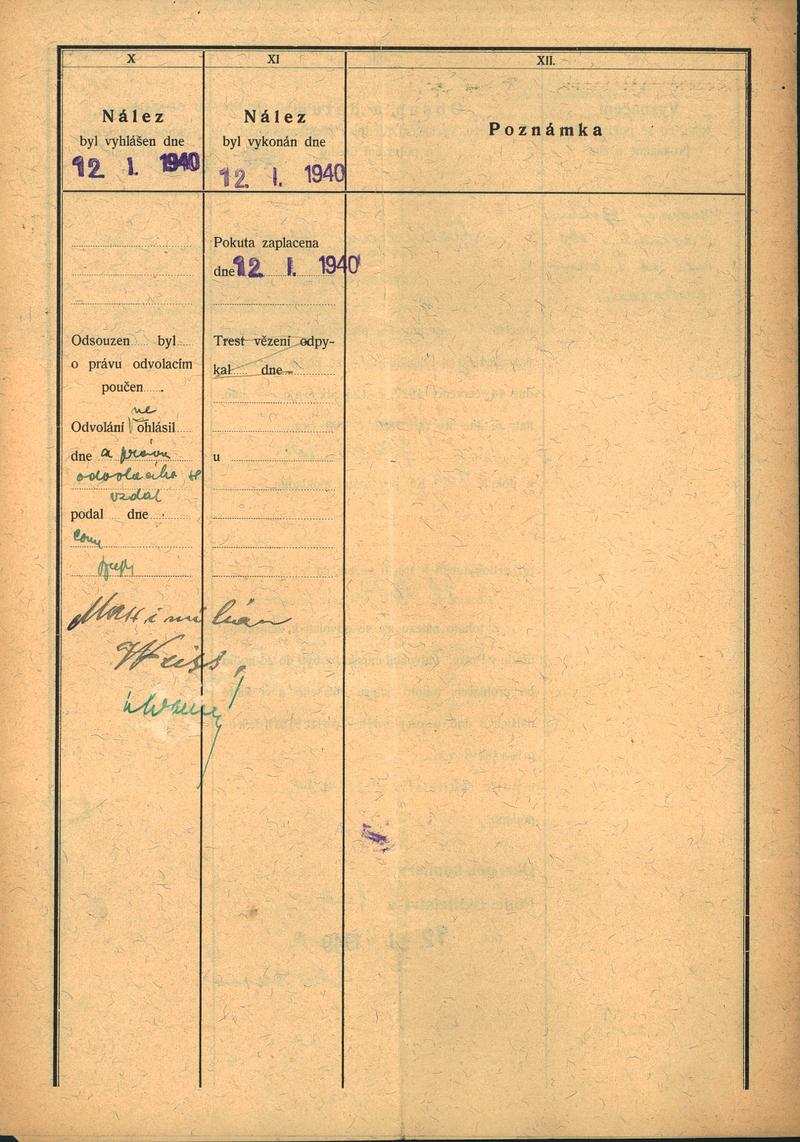 X
Nález
byl vyhlášen dne
12 I. 1940
Odsouzen byl
o právu odvolacím
poučen
ne
Odvolání ohlásil
dne a právu
odvolacího se
vzdal
podal dne
Maximilián
Weiss
XI
Nález
byl vykonán dne
12 I. 1940
Pokuta zaplacena
dne 12 I. 1940
Trest vězení odpy-
kal dne
u
XII.
Poznámka